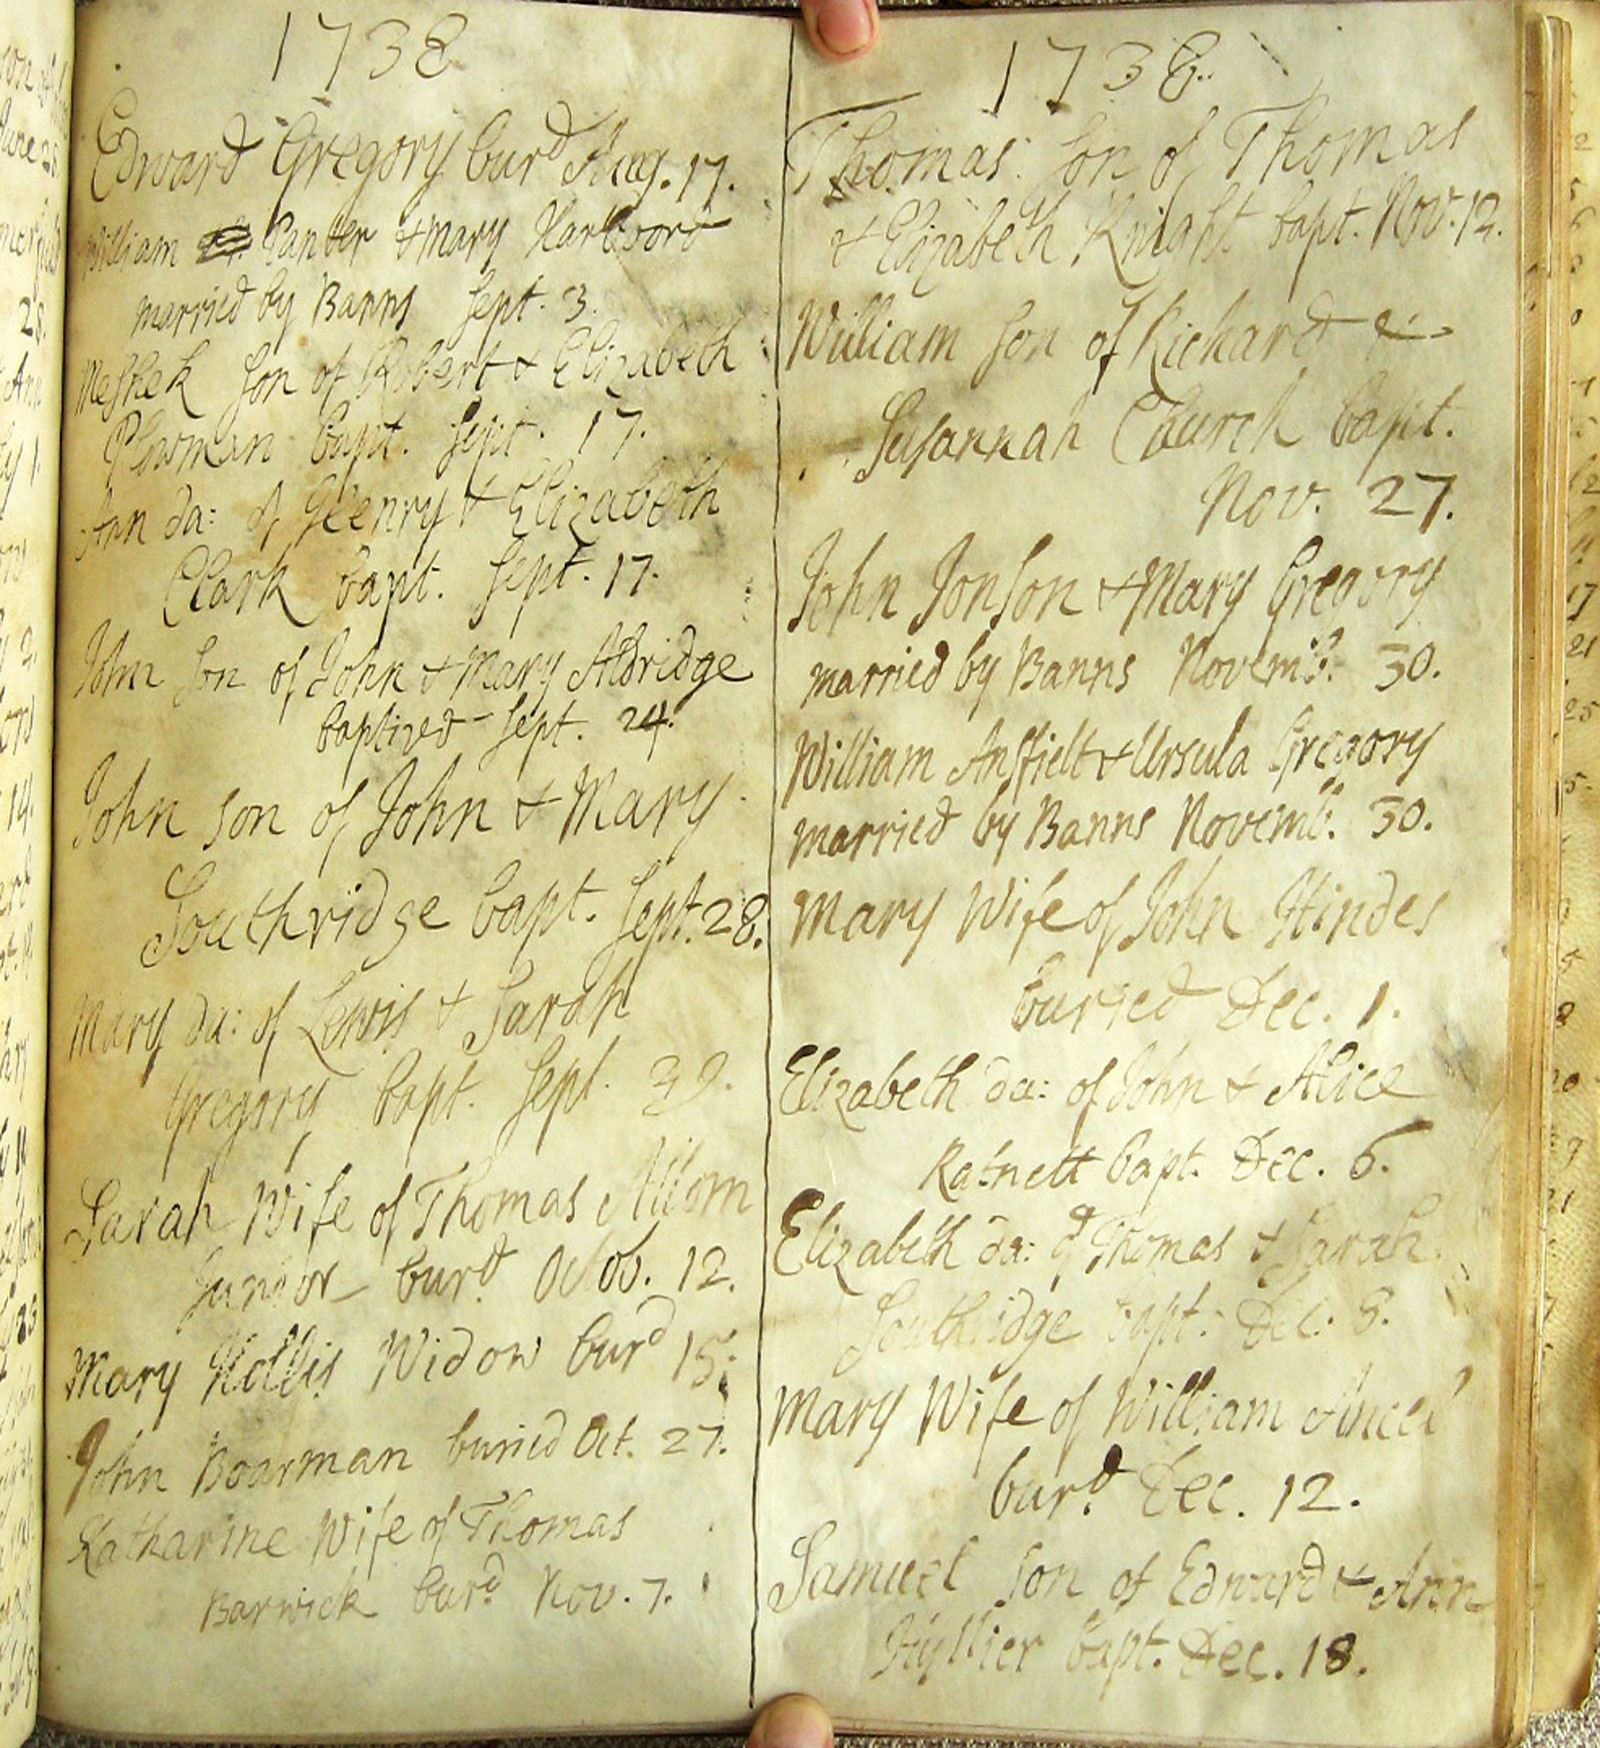 1738
Edward Gregory burd Aug. 17.
William Panter & Mary
married by Banns Sept. 3.
Meshek Son of Robert & Elizabeth
Plowman bapt. Sept. 17.
Ann da: of Henry & Elizabeth
Clark bapt. Sept. 17.
John Son of John & Mary Aldridge
baptized Sept. 24.
John son of John & Mary
Southridge bapt. Sept. 28.
Mary da: of Lewis & Sarah
Gregory bapt. Sept.
Sarah Wife of Thomas
Junior burd Octob. 12.
Mary Widow burd 15.
John Boarman buried Oct. 27.
Katharine Wife of Thomas
Barwick burd Nov. 7.
1738.
Thomas Son of Thomas
& Elizabeth Knight bapt. Nov. 12.
William Son of Richard &
Susannah Church bapt.
Nov. 27.
John Jonson & Mary Gregory
married by Banns Novemb. 30.
William & Ursula Gregory
married by Banns Novemb. 30.
Mary Wife of John Hindes
buried Dec. 1.
Elizabeth da: of John & Alice
bapt. Dec. 6.
Elizabeth da: of Thomas & Sarah
Southridge bapt. Dec. 8.
Mary Wife of William
burd Dec. 12.
Samuel Son of Edward & Ann
Hyllier bapt. Dec. 18.